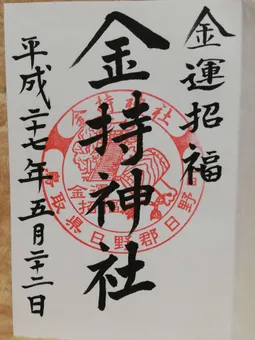 金運招福
金持神社
平成二十七年五月二十二日
金持神社
鳥取県日野郡日野